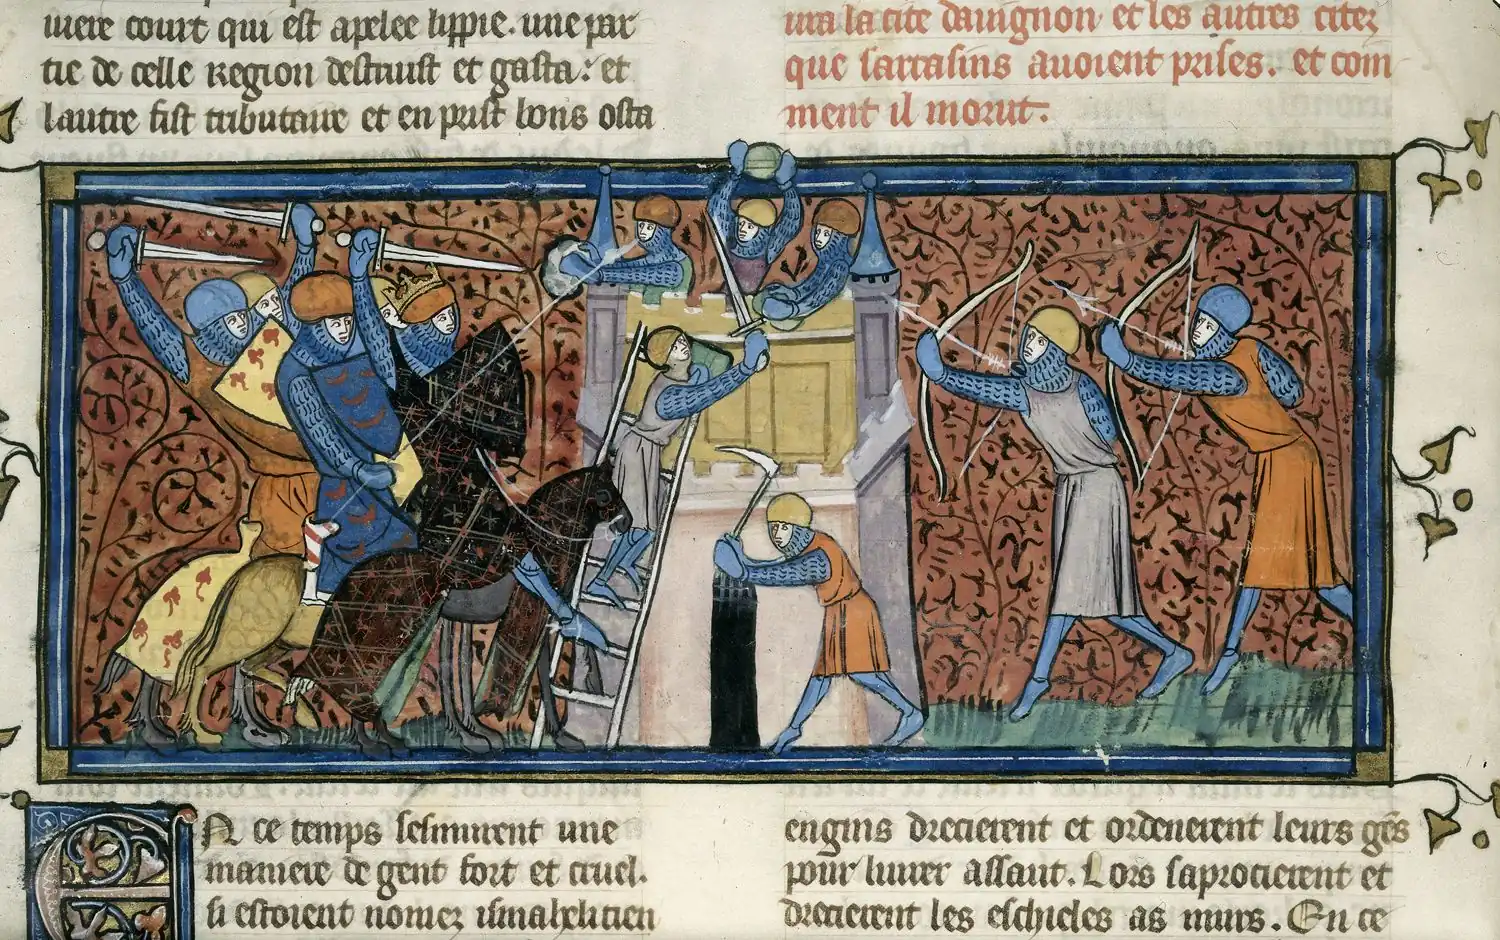 uiere court qui est apelee lippie. une par
tie de celle region destruist et gasta: et
lautre fist tributaire et en prist bons osta
ura la cite dauignon et les autres citez
que sarrasins auoient prises. et com
ment il morut.
En ce temps sesmurent une
maniere de gent fort et cruel.
si estoient nomez ismahelitien
engins drecierent et ordenerent leurs gens
pour liurer assaut. Lors saprocierent et
drecierent les eschieles as murs. En ce